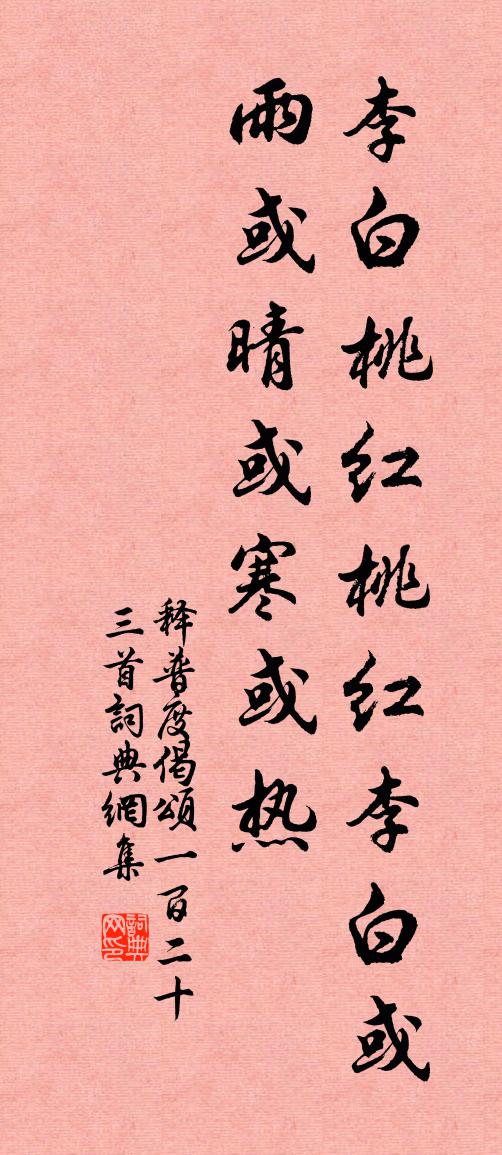 李白桃红桃红李白或
雨或晴或寒或热
释普度偈颂一百二十
三首詞典網集
詞典网印